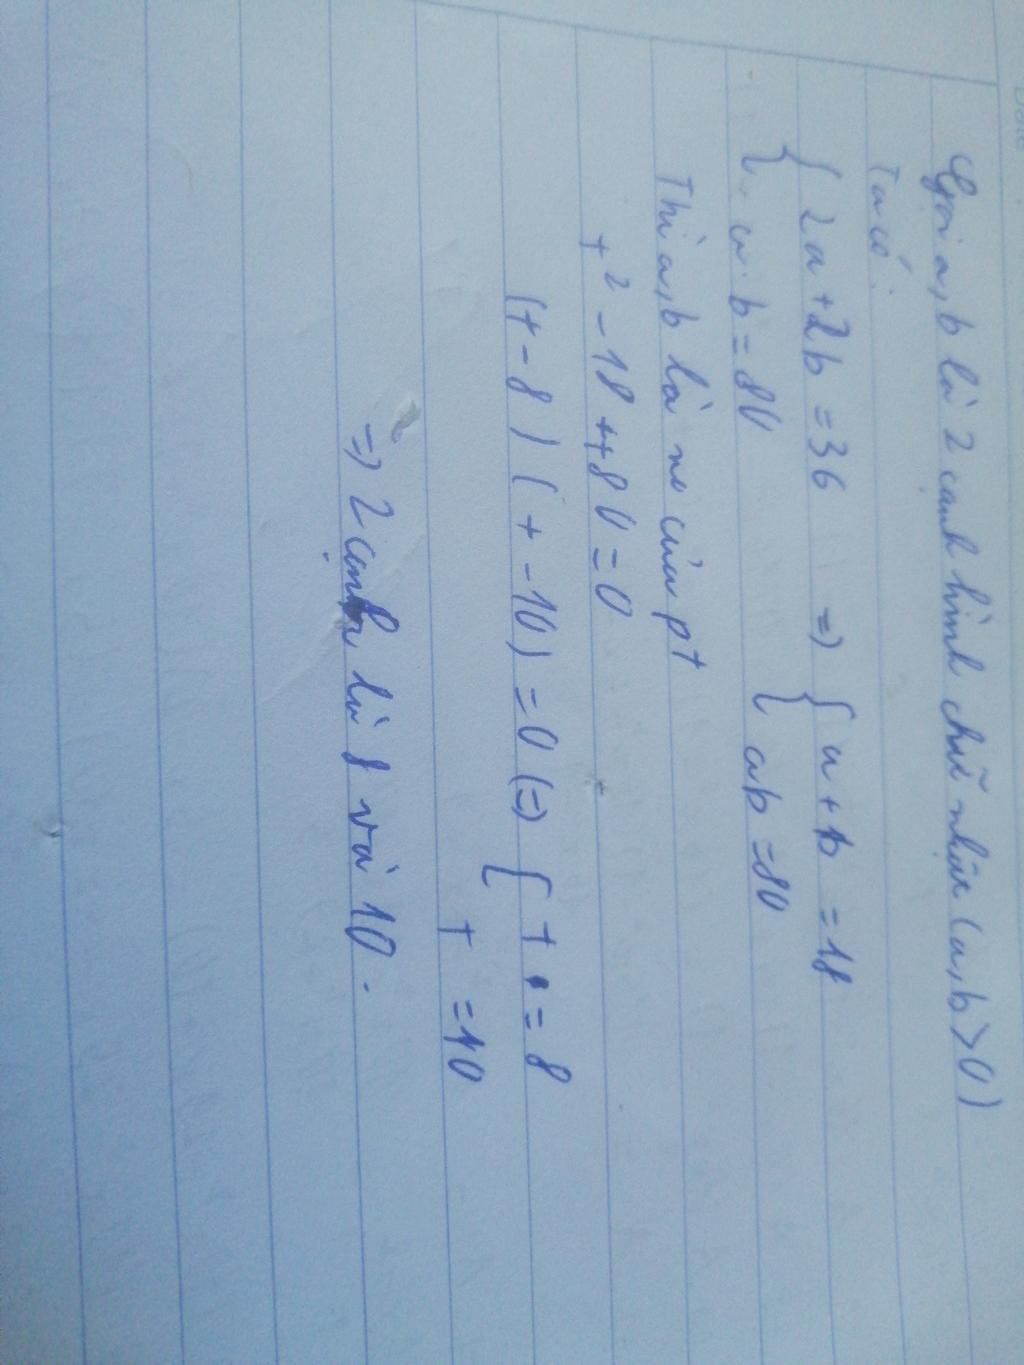 Gọi a, b là 2 cạnh hình chữ nhật (a, b > 0)
Ta có:
{ 2a + 2b = 36 => { a + b = 18
{ a . b = 80 { ab = 80
Thì a, b là no của pt
t² - 18t + 80 = 0
(t - 8) (t - 10) = 0 (=) [ t = 8
t = 10
=) 2 cạnh là 8 và 10.